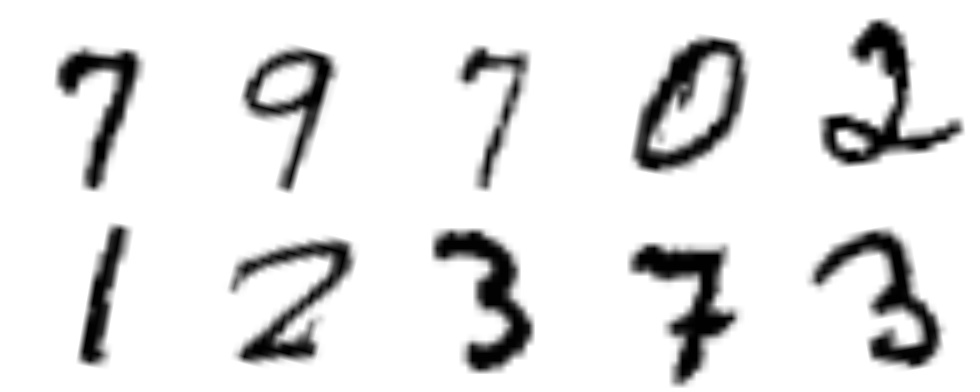 7 9 7 0 2
1 2 3 7 3